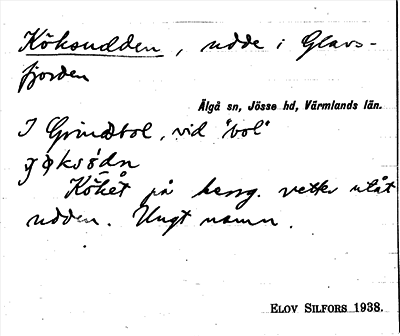 Köksudden, udde i Glavs-
fjorden
Älgå sn, Jösse hd, Värmlands län.
I Grindbol, vid "bol"
Köket på berg. vetter utåt
udden. Ungt namn.
ELOV SILFORS 1938.